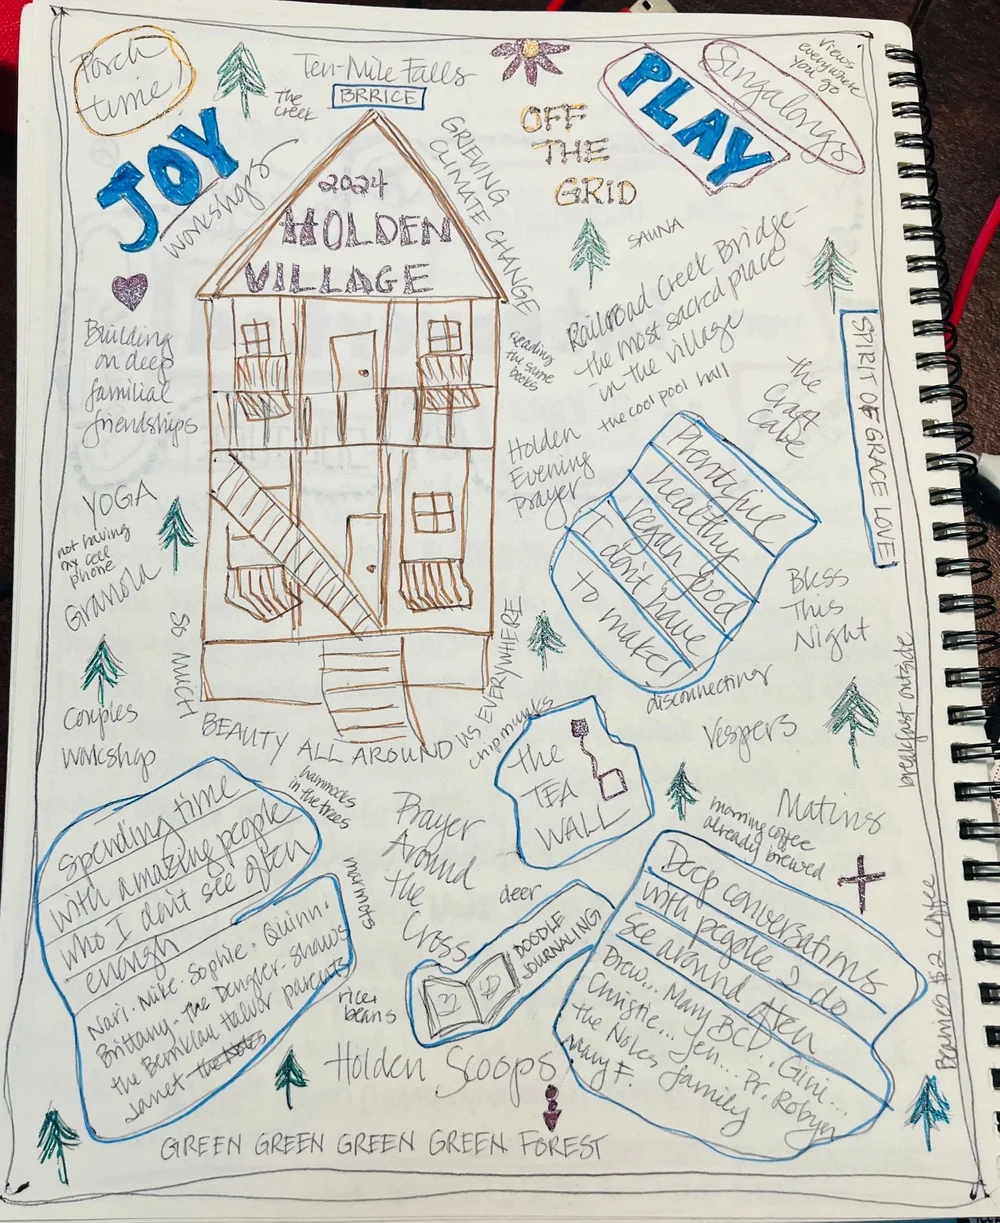 Porch
time!
Ten-Mile Falls
BRRICE
The
Creek
OFF
THE
GRID
PLAY
Singalongs
views
everywhere
you go
JOY
workshops
GRIEVING
CLIMATE CHANGE
2024
HOLDEN
VILLAGE
SAUNA
Railroad Creek Bridge-
the most sacred place
in the village
the cool pool hall
Reading
the same
books
Building
on deep
familial
friendships
the
Craft
Cave
SPIRIT OF GRACE LOVE!
Holden
Evening
Prayer
Plentiful
healthy
vegan food
I don't have
to make!
YOGA
not having
my cell
phone
Granola
Bless
This
Night
SO MUCH
BEAUTY ALL AROUND
US EVERYWHERE
Couples
workshop
disconnecting
Vespers
breakfast outside
chipmunks
the
TEA
WALL
hammocks
in the trees
spending time
with amazing people
who I don't see often
enough
Nari. Mike. Sophie. Quinn.
Brittany. the Dengler-Shaws
Janet
Prayer
Around
the
Cross
marmots
deer
DOODLE
JOURNALING
rice &
beans
Matins
morning coffee
already brewed
Deep conversations
with people I do
see around often
Drew... Mary BCD... Gini...
Christie... Jen... Pr. Robyn
the Noles family
Mary F.
$2 Coffee
Holden Scoops
GREEN GREEN GREEN GREEN FOREST